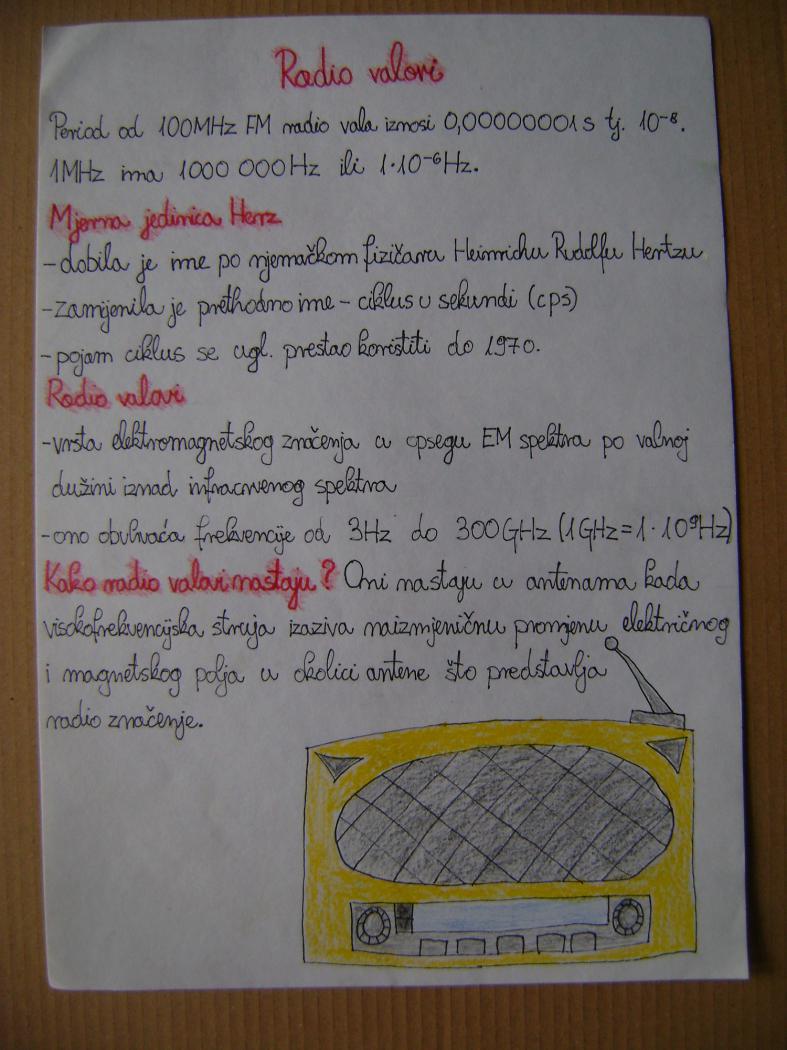 Radio valovi
Period od 100MHz FM radio vala iznosi 0,00000001s tj. 10⁻⁸.
1MHz ima 1000 000Hz ili 1·10⁻⁶Hz.
Mjerna jedinica Herz
-dobila je ime po njemačkom fizičaru Heinrichu Rudolfu Hertzu
-zamjenila je prethodno ime - ciklus u sekundi (cps)
-pojam ciklus se ugl. prestao koristiti do 1970.
Radio valovi
-vrsta elektromagnetskog značenja u opsegu EM spektra po valnoj
dužini iznad infracrvenog spektra
-ono obuhvaća frekvencije od 3Hz do 300GHz (1GHz=1·10⁹Hz)
Kako radio valovi nastaju? Oni nastaju u antenama kada
visokofrekvencijska struja izaziva naizmjeničnu promjenu električnog
i magnetskog polja u okolici antene što predstavlja
radio značenje.